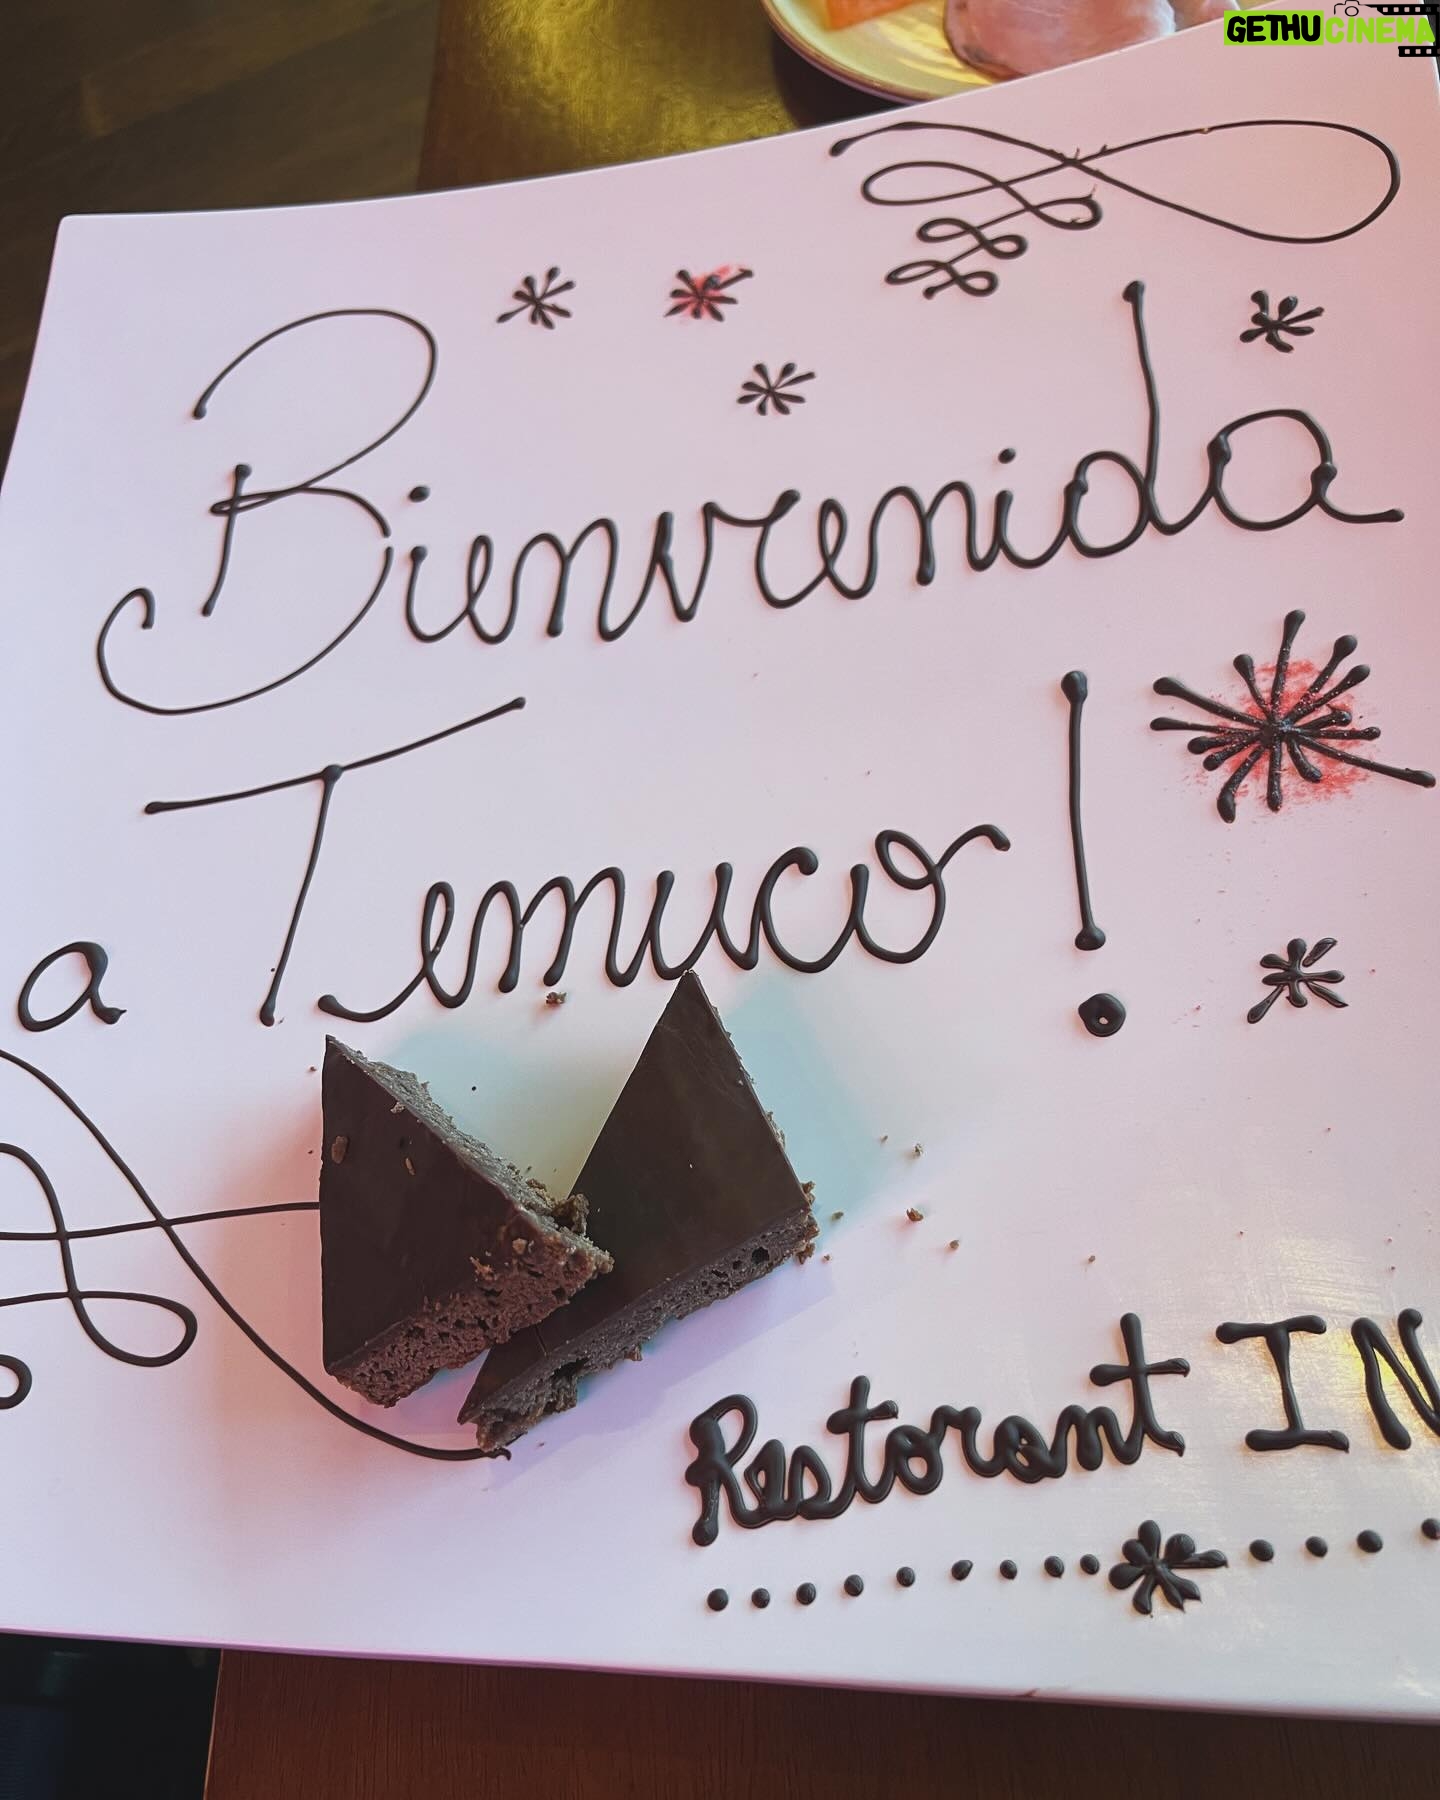 GETHUCINEMA
Bienvenida
a Temuco!
Restorant IN